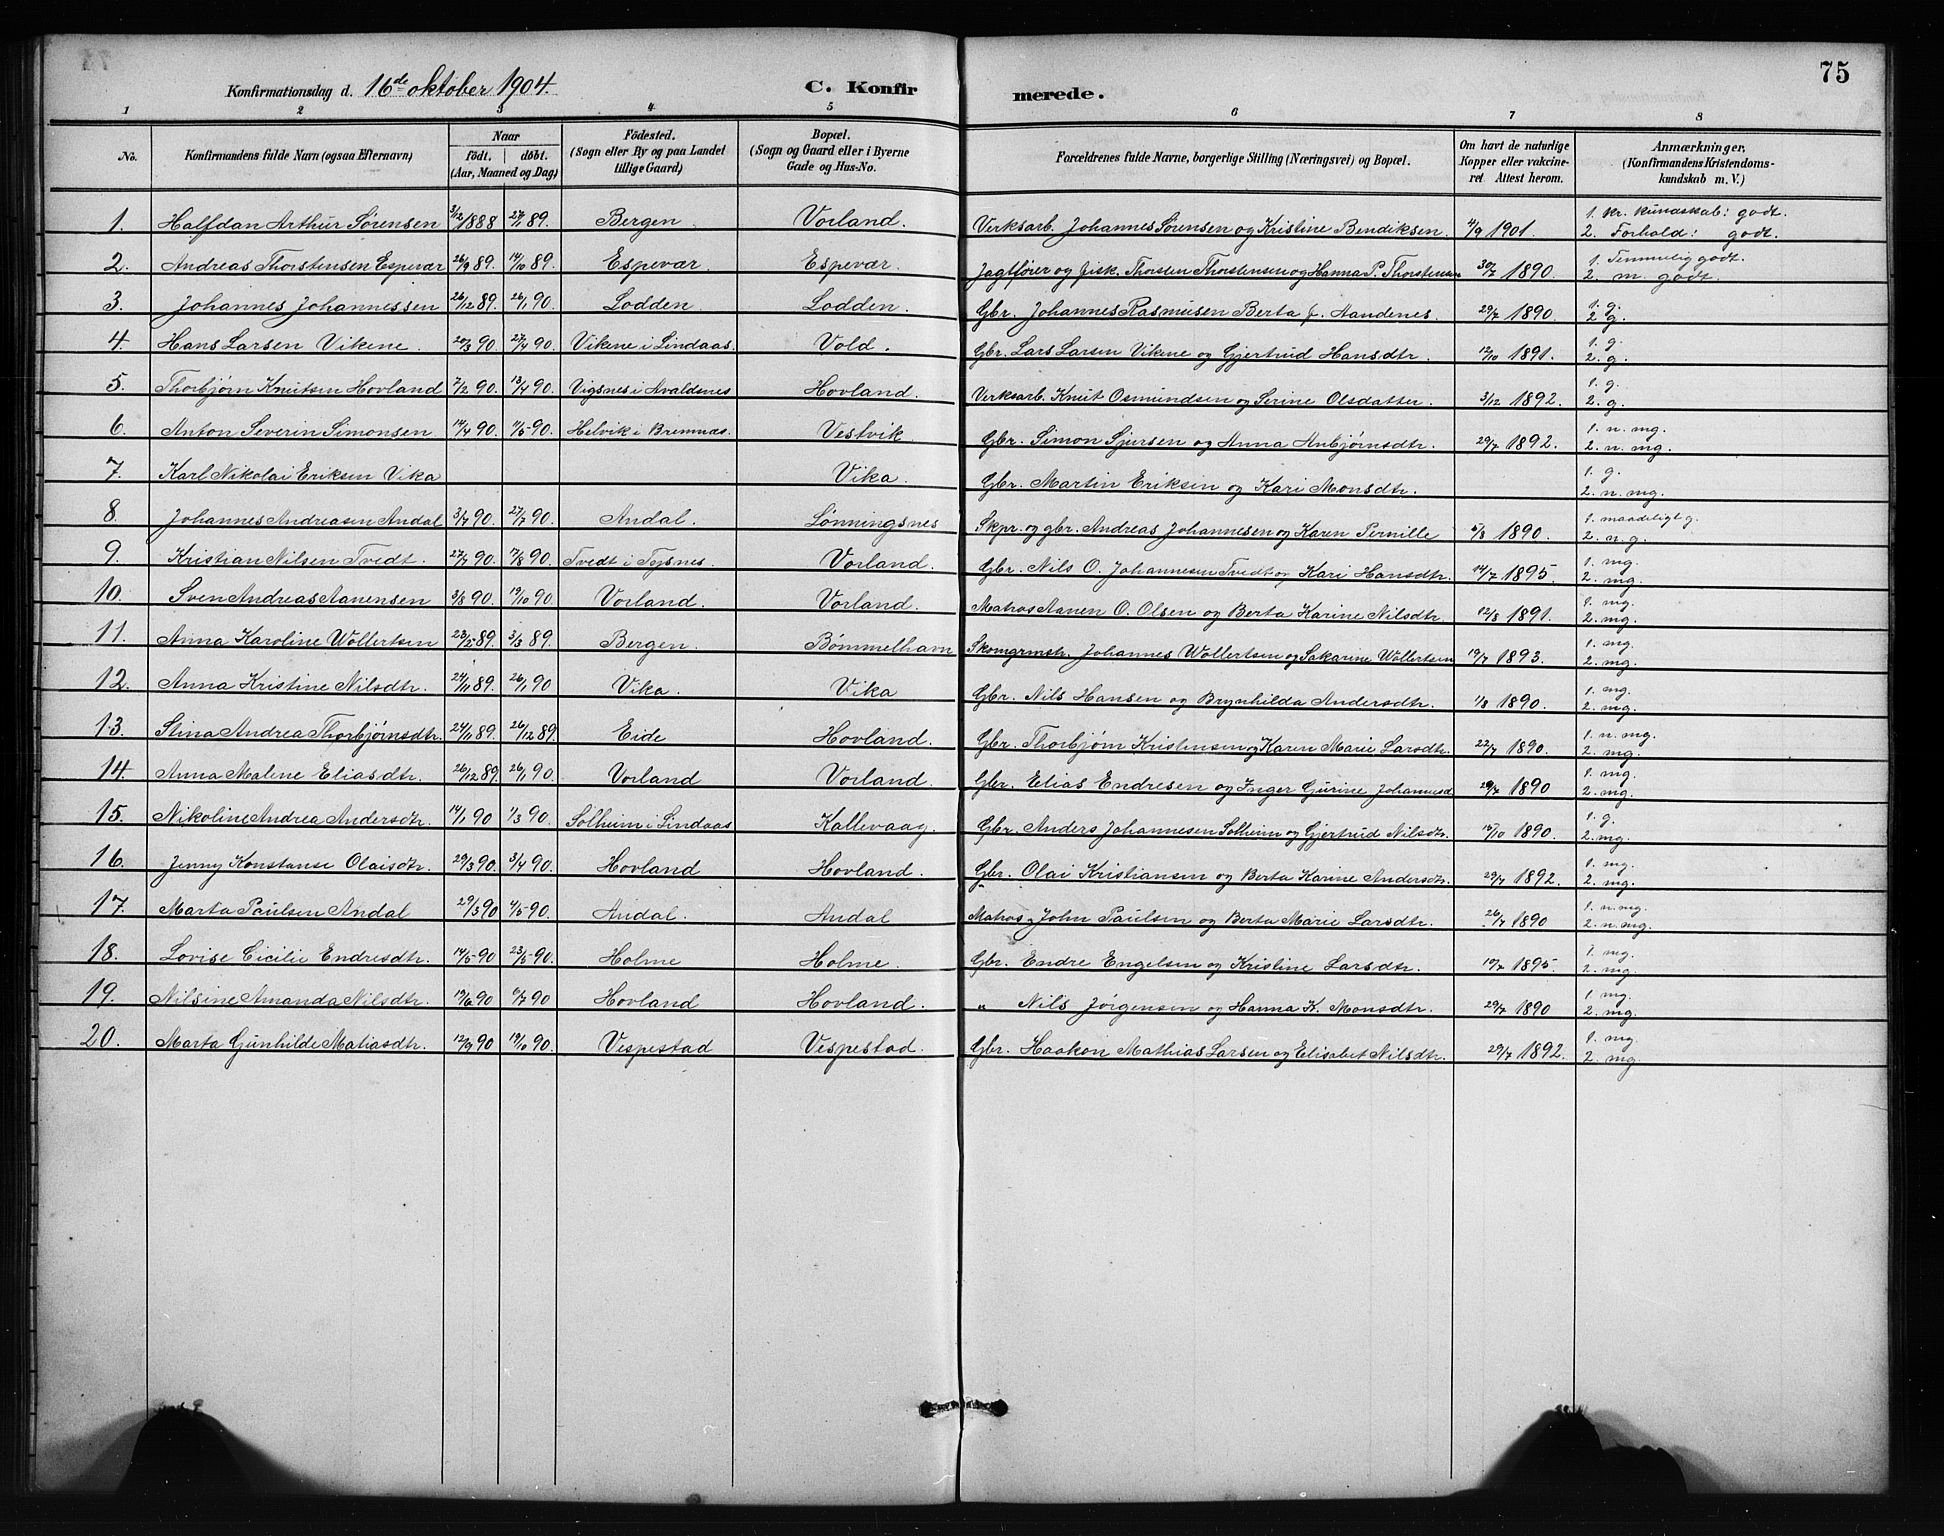 75
Konfirmationsdag d. 16de oktober 1904. C. Konfirmerede.
1 2 3 4 5 6 7 8
No. Konfirmandens fulde Navn (ogsaa Efternavn) Naar født. døbt. (Aar, Maaned og Dag) Födested. (Sogn eller By og paa Landet tillige Gaard) Bopæl. (Sogn og Gaard eller i Byerne Gade og Hus-No. Forældrenes fulde Navne, borgerlige Stilling (Næringsvei) og Bopæl. Om havt de naturlige Kopper eller vakcineret Attest herom. Anmærkninger, (Konfirmandens Kristendomskundskab m. V.)
1. Halfdan Arthur Sørensen 3/12 1888 27/1 89. Bergen. Vorland. Verksarb. Johannes Sørensen og Kristine Bendiksen. 4/9 1901. 1. kr. kundskab: godt. 2. Forhold: godt.
2. Andreas Thorstensen Espevær 26/9 89. 14/10 89. Espevær. Espevær. Jagtfører og fisk. Thorsten Thorstensen og Hanna P. Thorstensen 30/7 1890. 1. Temmelig godt. 2. m. godt.
3. Johannes Johannessen 26/12 89. 26/1 90. Lodden. Lodden. Gbr. Johannes Rasmusen Berta f. Aandenes. 29/7 1890. 1. g. 2. g.
4. Hans Larsen Vikene. 20/3 90. 27/4 90. Vikene i Lindaas Vold. Gbr. Lars Larsen Vikene og Gjertrud Hansdtr. 12/10 1891. 1. g. 2. g.
5. Thorbjørn Knutsen Hovland 7/2 90. 13/4 90. Vigsnes i Avaldsnes Hovland. Verksarb. Knut Osmundsen og Serine Olsdatter. 3/12 1892. 1. g. 2. g.
6. Anton Severin Simonsen 14/4 90. 11/5 90. Helvik i Bremnæs. Vestvik. Gbr. Simon Sjursen og Anna Anbjørnsdtr. 29/7 1892. 1. n. mg. 2. n. mg.
7. Karl Nikolai Eriksen Vika Vika. Gbr. Martin Eriksen og Kari Monsdtr. 1. g. 2. n. mg.
8. Johannes Andreasen Andal 3/7 90. 27/7 90. Andal. Lønningsnes Skpr. og gbr. Andreas Johannesen og Karen Pernille 1890. 1. maadeligt g. 2. n. g.
9. Kristian Nilsen Tvedt. 27/7 90. 17/8 90. Tvedt i Tysnes. Vorland. Gbr. Nils O. Johannesen Tvedt og Kari Hansdtr. 14/7 1895. 1. mg. 2. mg.
10. Sven Andreas Aanensen 3/8 90. 19/10 90. Vorland. Vorland. Matros Aanen O. Olsen og Berta Karine Nilsdtr. 12/8 1891. 1. mg. 2. mg.
11. Anna Karoline Wollertsen 23/2 89. 3/3 89. Bergen. Bømmelhavn Skomgrmstr. Johannes Wollertsen og Sakarine Wollertsen 19/7 1893. 1. mg. 2. mg.
12. Anna Kristine Nilsdtr. 24/11 89. 26/1 90 Vika. Vika Gbr. Nils Hansen og Brynhilda Andersdtr. 1/8 1890. 1. mg. 2. mg.
13. Stina Andrea Thorbjørnsdtr. 24/11 89. 26/12 89. Eide Hovland. Gbr. Thorbjørn Kristensen og Karen Marie Larsdtr. 22/7 1890. 1. n. mg. 2. mg.
14. Anna Malene Eliasdtr. 26/12 89. 26/1 90. Vorland Vorland. Gbr. Elias Endresen og Inger Gurine Johannesd 29/7 1890 1. mg. 2. mg.
15. Nikoline Andrea Andersdtr. 14/1 90 1/3 90. Solheim i Lindaas Kallevaag. Gbr. Anders Johannesen Solheim og Gjertrud Nilsdtr. 15/10 1890. 1. g. 2. mg.
16. Jenny Konstanse Olaisdtr. 29/3 90. 3/4 90. Hovland Hovland. Gbr. Olai Kristiansen og Berta Karine Andersdtr. 29/7 1892. 1. mg. 2. mg.
17. Marta Paulsen Andal 29/3 90 4/5 90. Andal. Andal Matros John Paulsen og Berta Marie Larsdtr. 26/7 1890 1. n. mg. 2. n. mg.
18. Lovise Cicilie Endresdtr. 14/5 90 23/5 90. Holme Holme. Gbr. Endre Engelsen og Kristine Larsdtr. 10/7 1895. 1. mg. 2. mg.
19. Nilsine Amanda Nilsdtr. 19/6 90 6/7 90 Hovland Hovland. " Nils Jørgensen og Hanna K. Monsdtr. 29/7 1890 1. mg. 2. mg.
20. Marta Gunhilde Matiasdtr. 12/9 90 19/10 90. Vespestad Vespestad. Gbr. Haakon Mathias Larsen og Elisabet Nilsdtr. 29/7 1892. 1. mg. 2. mg.